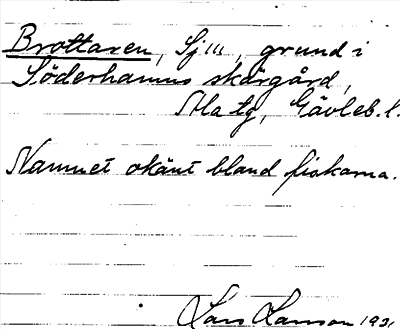 Brottaxen, Sj III, grund i
Söderhamns skärgård,
Ala tg, Gävleb. l.
Namnet okänt bland fiskarna.
Lars Larsson 1931